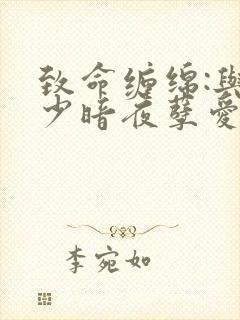 致命缠绵:與
少暗夜孽愛
李宛如